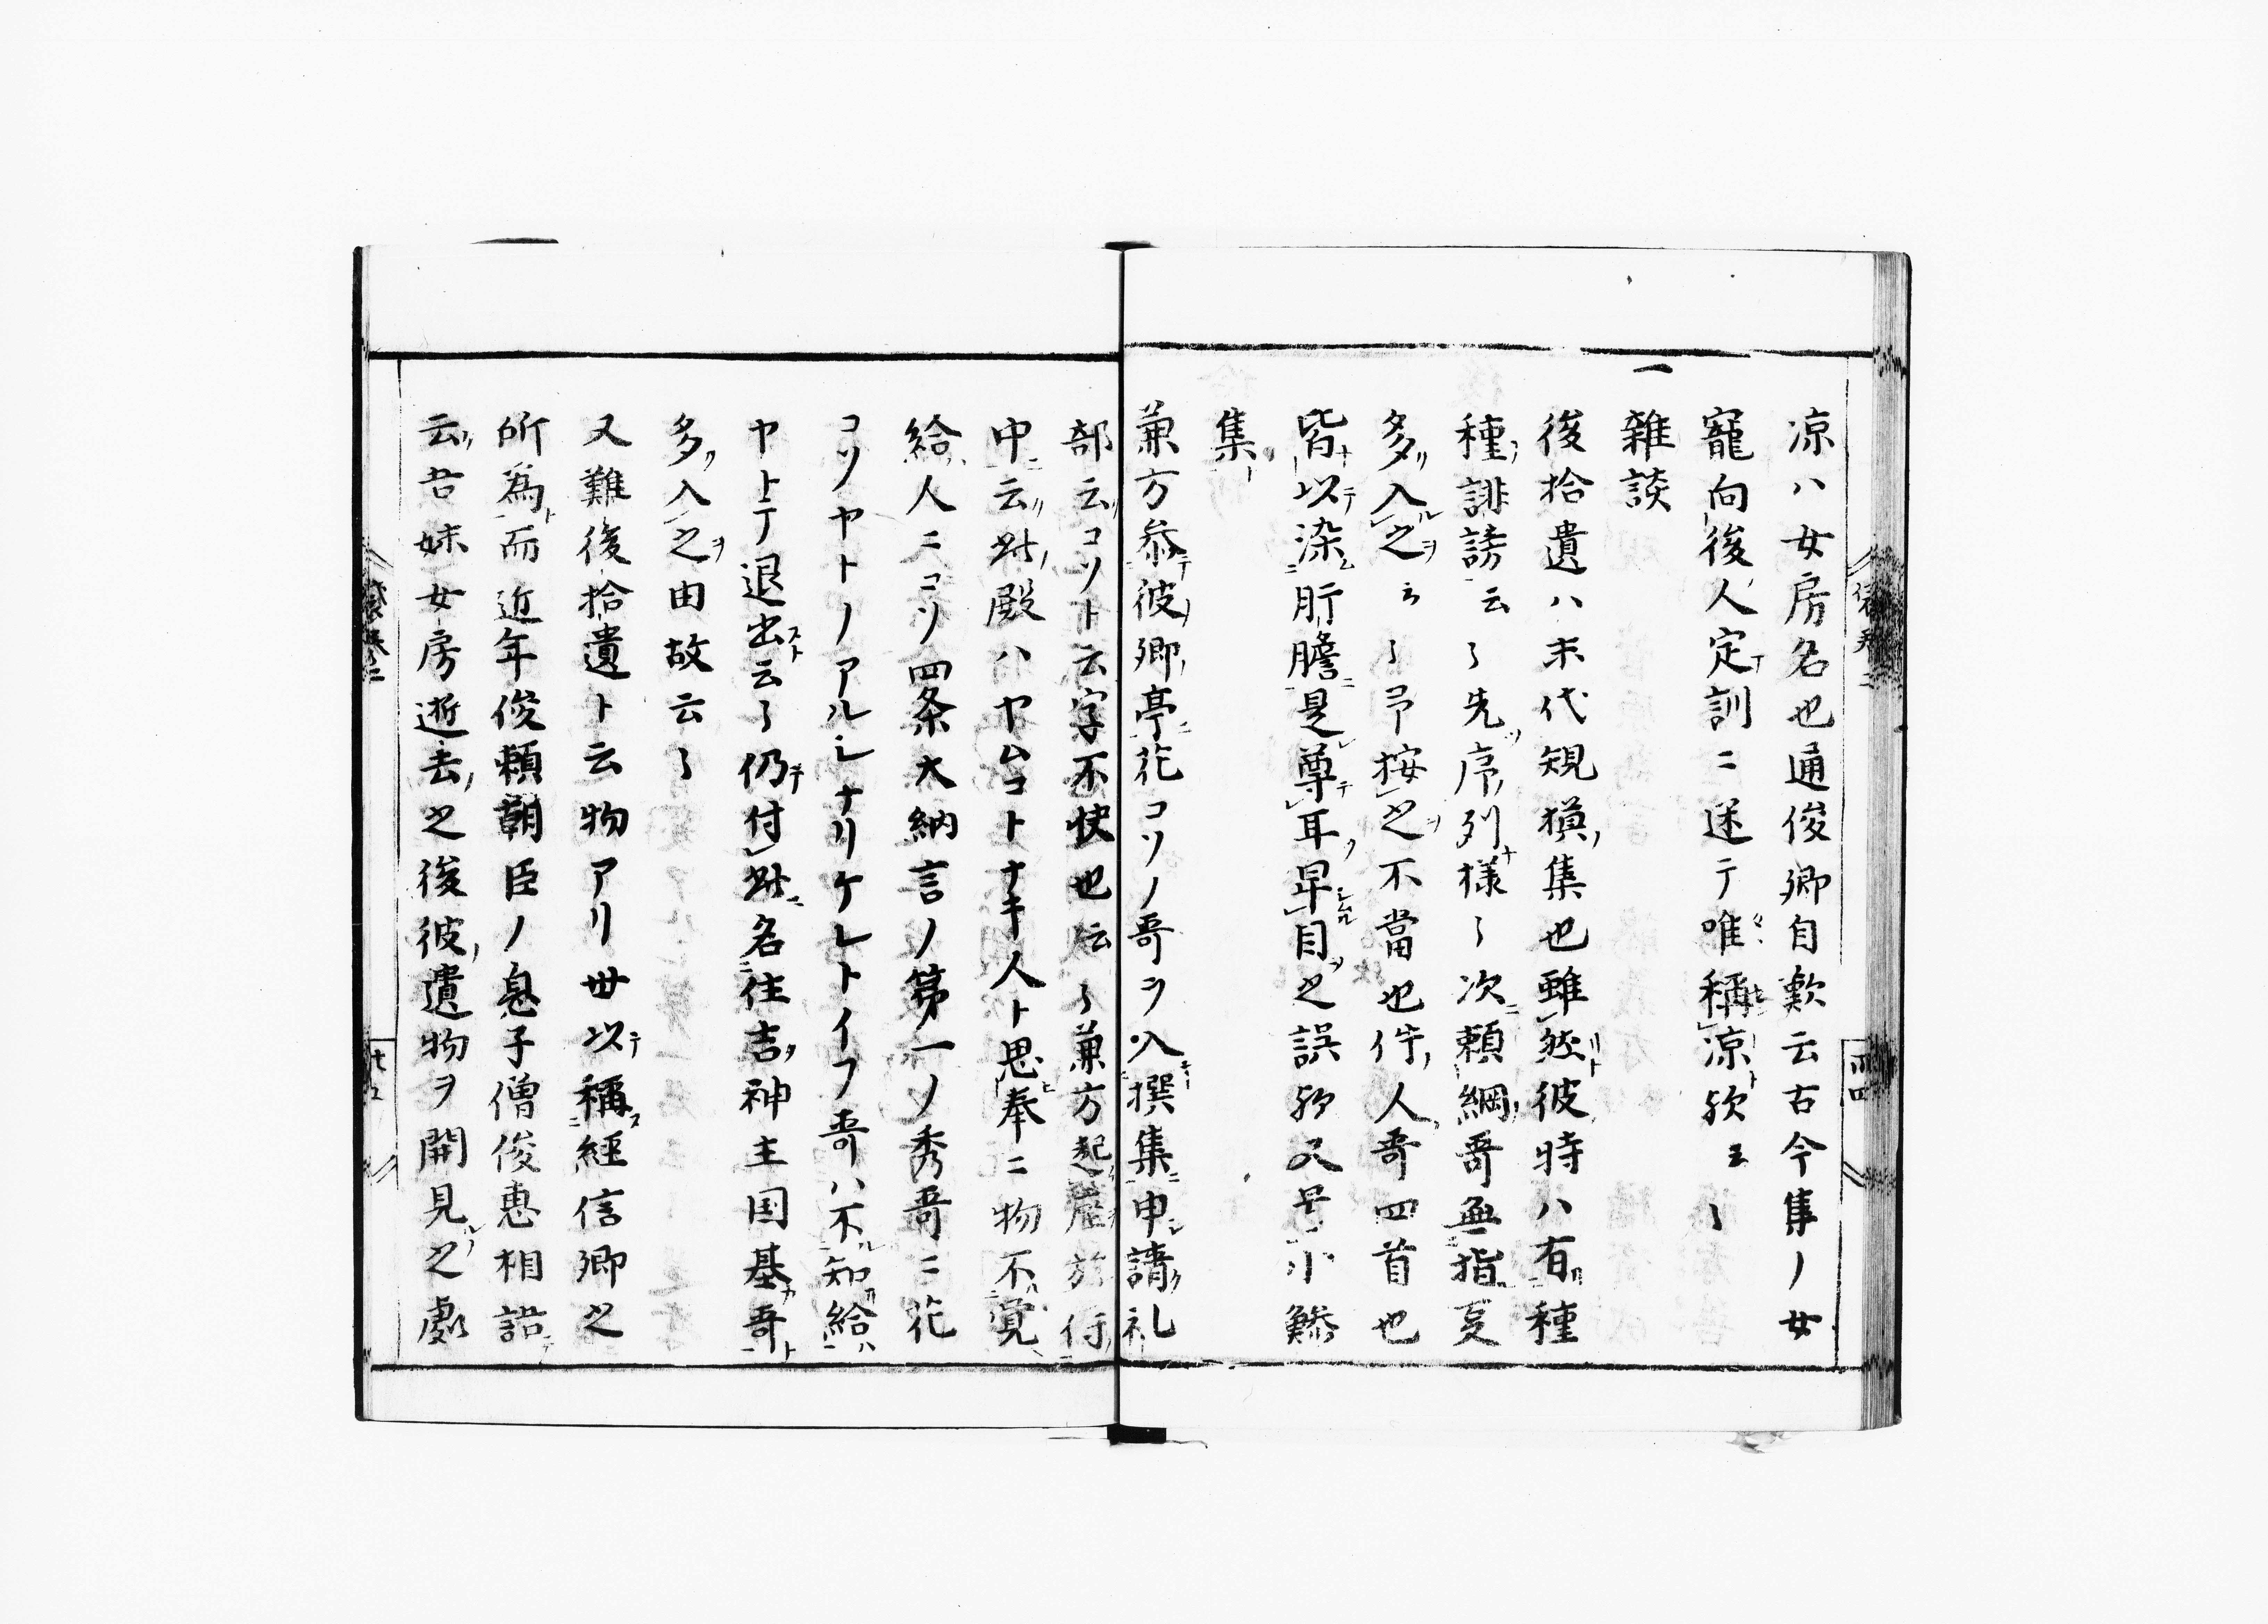 涼ハ女房名也通俊卿自歎云古今集ノ女
寵向後人定訓ニ迷テ唯稱涼欤云々
一
雜談
後拾遺ハ末代規摸集也雖然彼時ハ有種
種誹謗云々先序列樣々次頼綱哥無指叓
多入之云々予按之不當也件人哥四首也
皆以染肝膽是尊耳早目之誤欤又号小鯵
集
兼方参彼卿亭花コソノ哥ヲ入撰集申請礼
部云コソト云字不快也云々兼方起座於侍
中云此殿ハヤムコトナキ人ト思奉ニ物不覚
給人ニコソ四条大納言ノ第一ノ秀哥ニ花
コソヤトノアルシナリケレトイフ哥ハ不知給
ヤトテ退出云々仍付此名住吉神主国基哥
多入之由故云々
又難後拾遺ト云物アリ世以稱経信卿之
所為而近年俊頼朝臣ノ息子僧俊恵相語
云吾妹女房逝去之後彼遺物ヲ開見之處